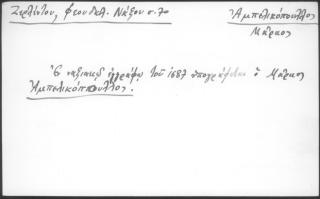 Ζερλέντου, Φεουδαλ. Νάξου σ. 70
Ἀμπελικόπουλλος
Μᾶρκος
Ἐν ναξιακῷ ἐγγράφῳ τοῦ 1687 ὑπογράφεται ὁ Μᾶρκος
Ἀμπελικόπουλλος.